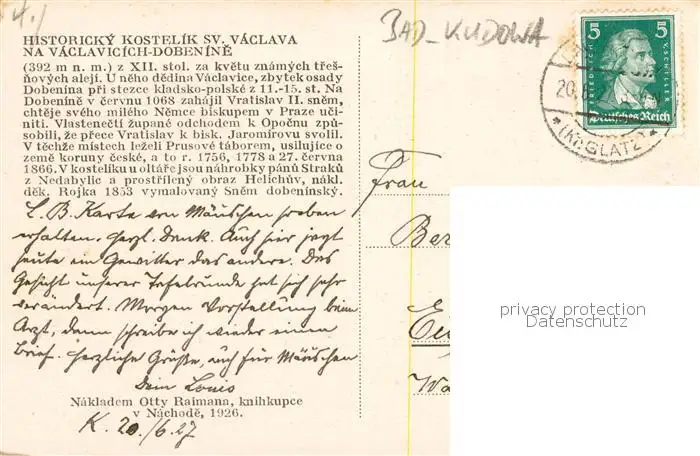 4.)
BAD-KUDOWA
HISTORICKÝ KOSTELÍK SV. VÁCLAVA
NA VÁCLAVICÍCH-DOBENÍNĚ
(392 m n. m.) z XII. stol. za květu známých třeš-
ňových alejí. U něho dědina Václavice, zbytek osady
Dobenína při stezce kladsko-polské z 11.-15. st. Na
Dobeníně v červnu 1068 zahájil Vratislav II. sněm,
chtěje svého milého Němce biskupem v Praze uči-
niti. Vlastenečtí župané odchodem k Opočnu způ-
sobili, že přece Vratislav k bisk. Jaromírovu svolil.
V těchže místech leželi Prusové táborem, usilujíce o
země koruny české, a to r. 1756, 1778 a 27. června
1866. V kostelíku u oltáře jsou náhrobky pánů Straků
z Nedabylic a prostřílený obraz Helichův, nákl.
děk. Rojka 1853 vymalovaný Sněm dobenínský.
L. B. Karte von Mäuschen soeben
erhalten. Herzl. Dank. Auch hier jagt
heute ein Gewitter das andere. Das
Gesicht unserer Tafelrunde hat sich sehr
verändert. Morgen Vorstellung beim
Arzt, dann schreibe ich wieder einen
Brief. Herzliche Grüße, auch für Mäuschen
Dein Louis
Nákladem Otty Raimana, knihkupce
v Náchodě, 1926.
K. 20./6.27
5 5
FRIEDRICH V. SCHILLER
Deutsches Reich
20.
(Kr. GLATZ)
Frau
Ber
privacy protection
Datenschutz